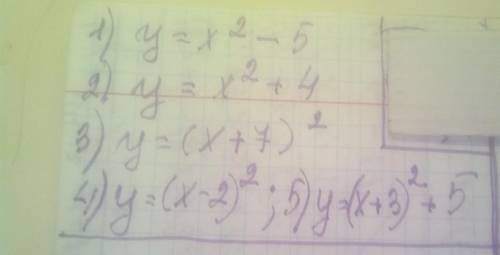 1) y = x² - 5
2) y = x² + 4
3) y = (x+7)²
4) y = (x-2)²; 5) y = (x+3)² + 5